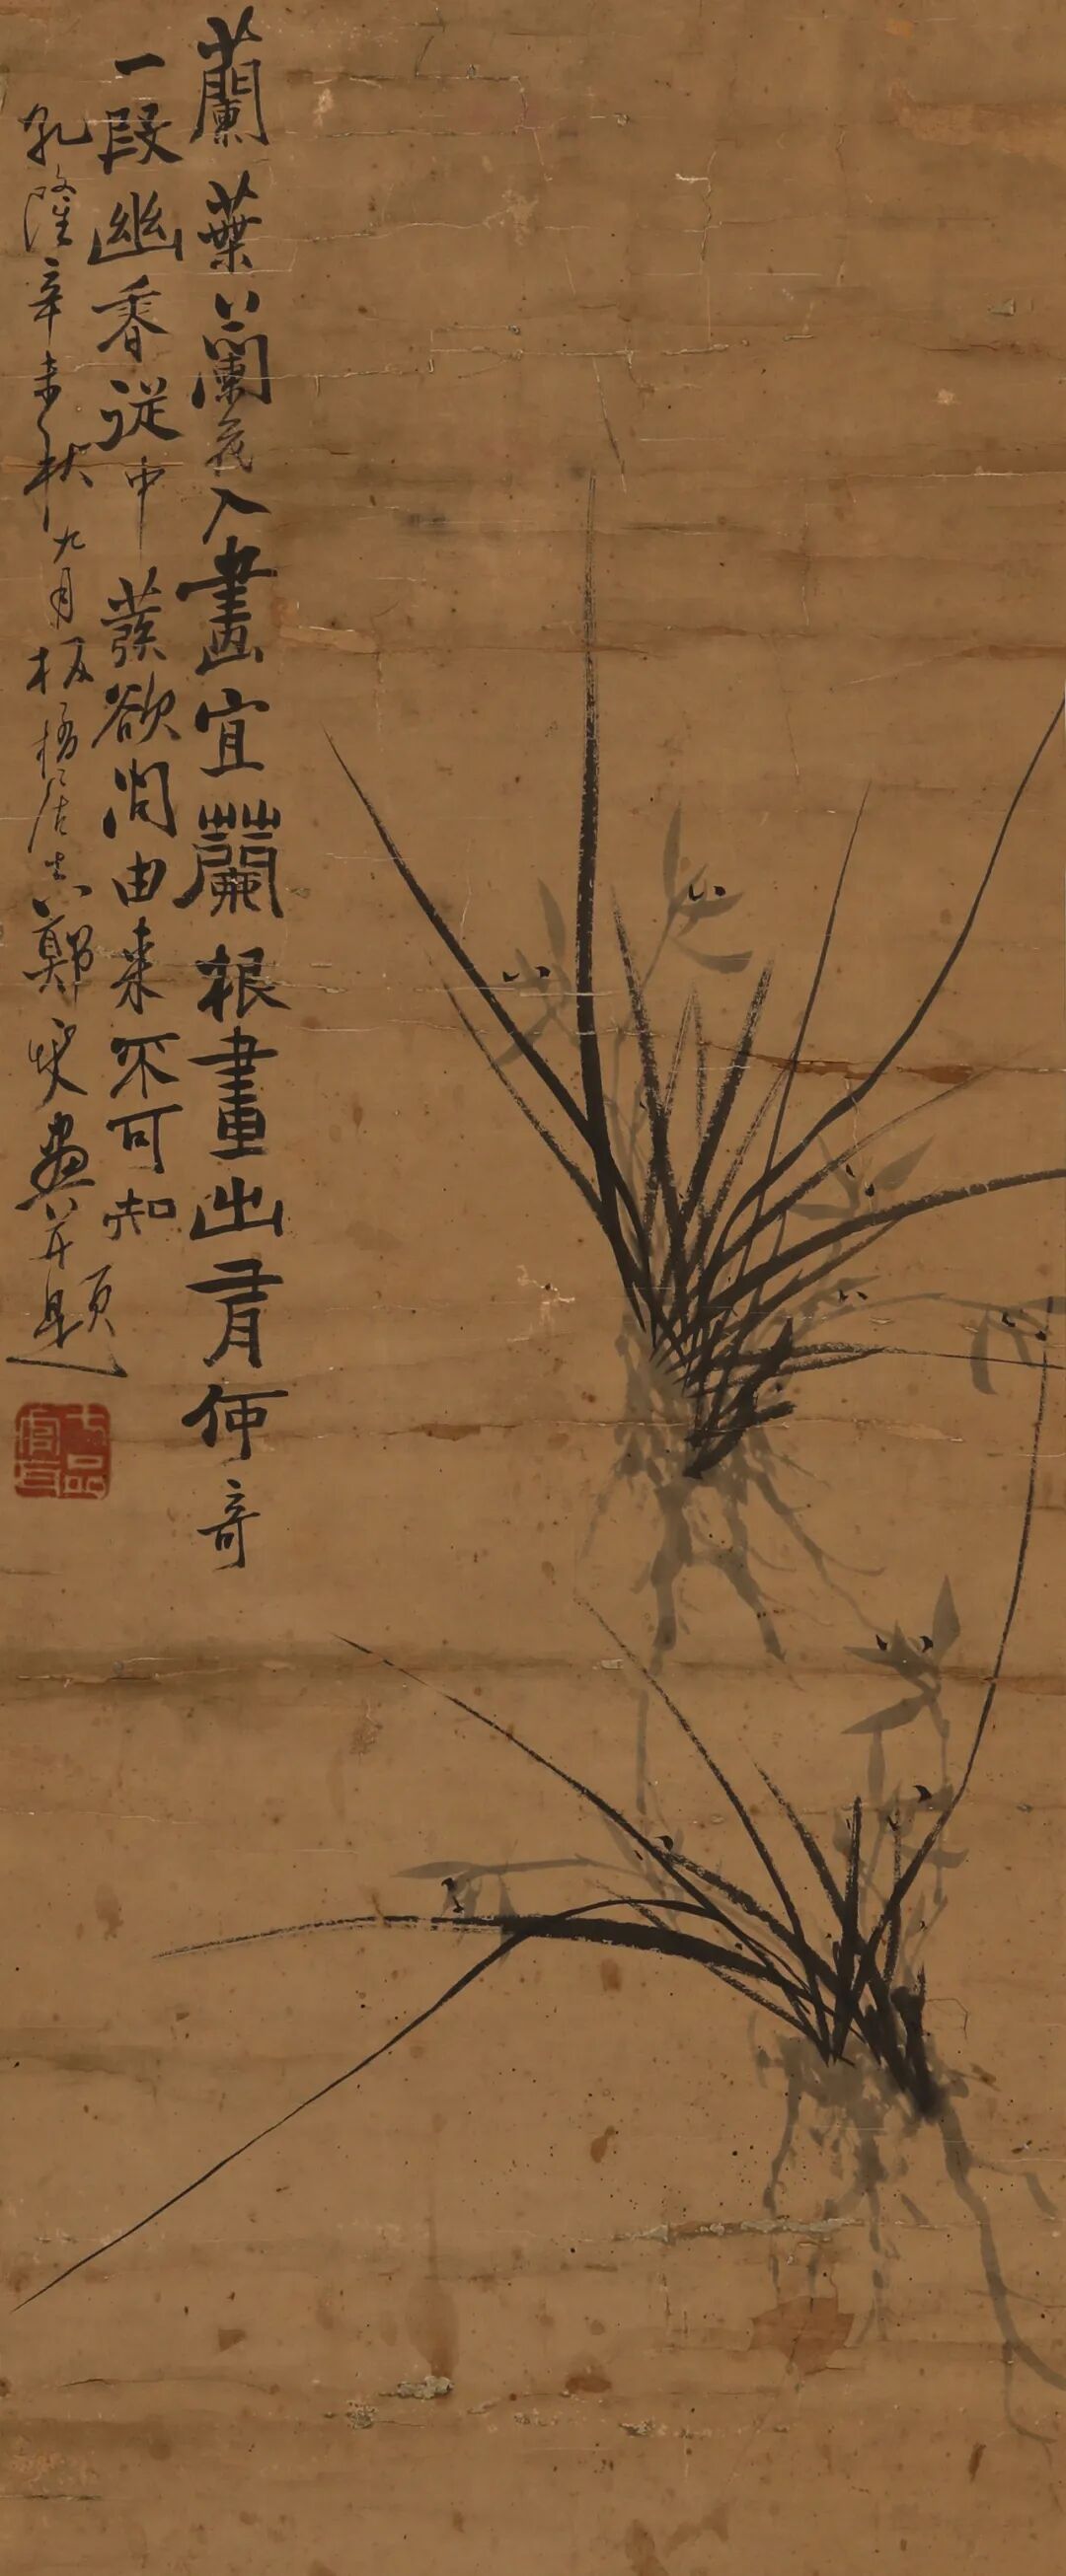 蘭葉蘭花入畫宜蘭根畫出有何奇
一段幽香從中發欲問由來不可知
乾隆辛未秋九月板橋居士鄭燮畫并題
七品官耳